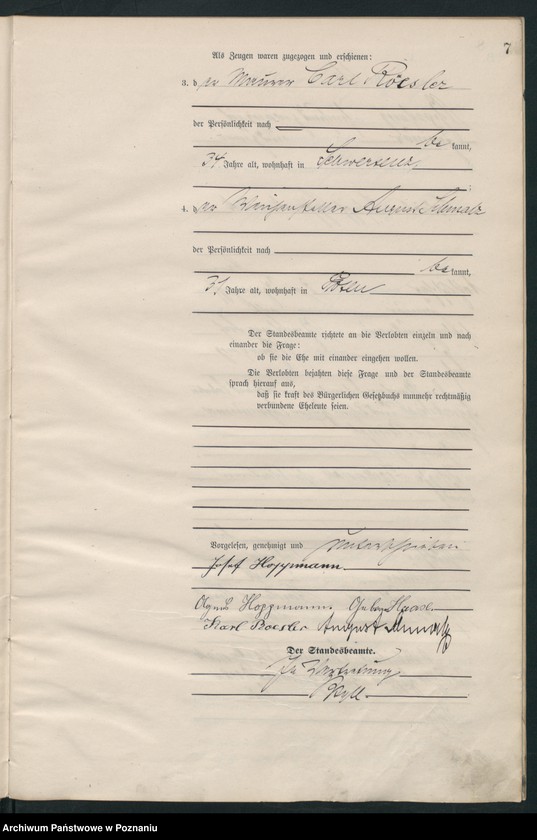 7
Als Zeugen waren zugezogen und erschienen:
3. der Maurer Carl Roesler
der Persönlichkeit nach
be kannt,
34 Jahre alt, wohnhaft in Schwersenz
4. der August Schmalz
der Persönlichkeit nach
be kannt,
31 Jahre alt, wohnhaft in Posen
Der Standesbeamte richtete an die Verlobten einzeln und nach
einander die Frage:
ob sie die Ehe mit einander eingehen wollen.
Die Verlobten bejahten diese Frage und der Standesbeamte
sprach hierauf aus,
daß sie kraft des Bürgerlichen Gesetzbuchs nunmehr rechtmäßig
verbundene Eheleute seien.
Vorgelesen, genehmigt und unterschrieben
Josef Hoppmann.
Agnes Hoppmann. Geborne Haase.
Karl Roesler August Schmalz
Der Standesbeamte.
In Vertretung
Archiwum Państwowe w Poznaniu